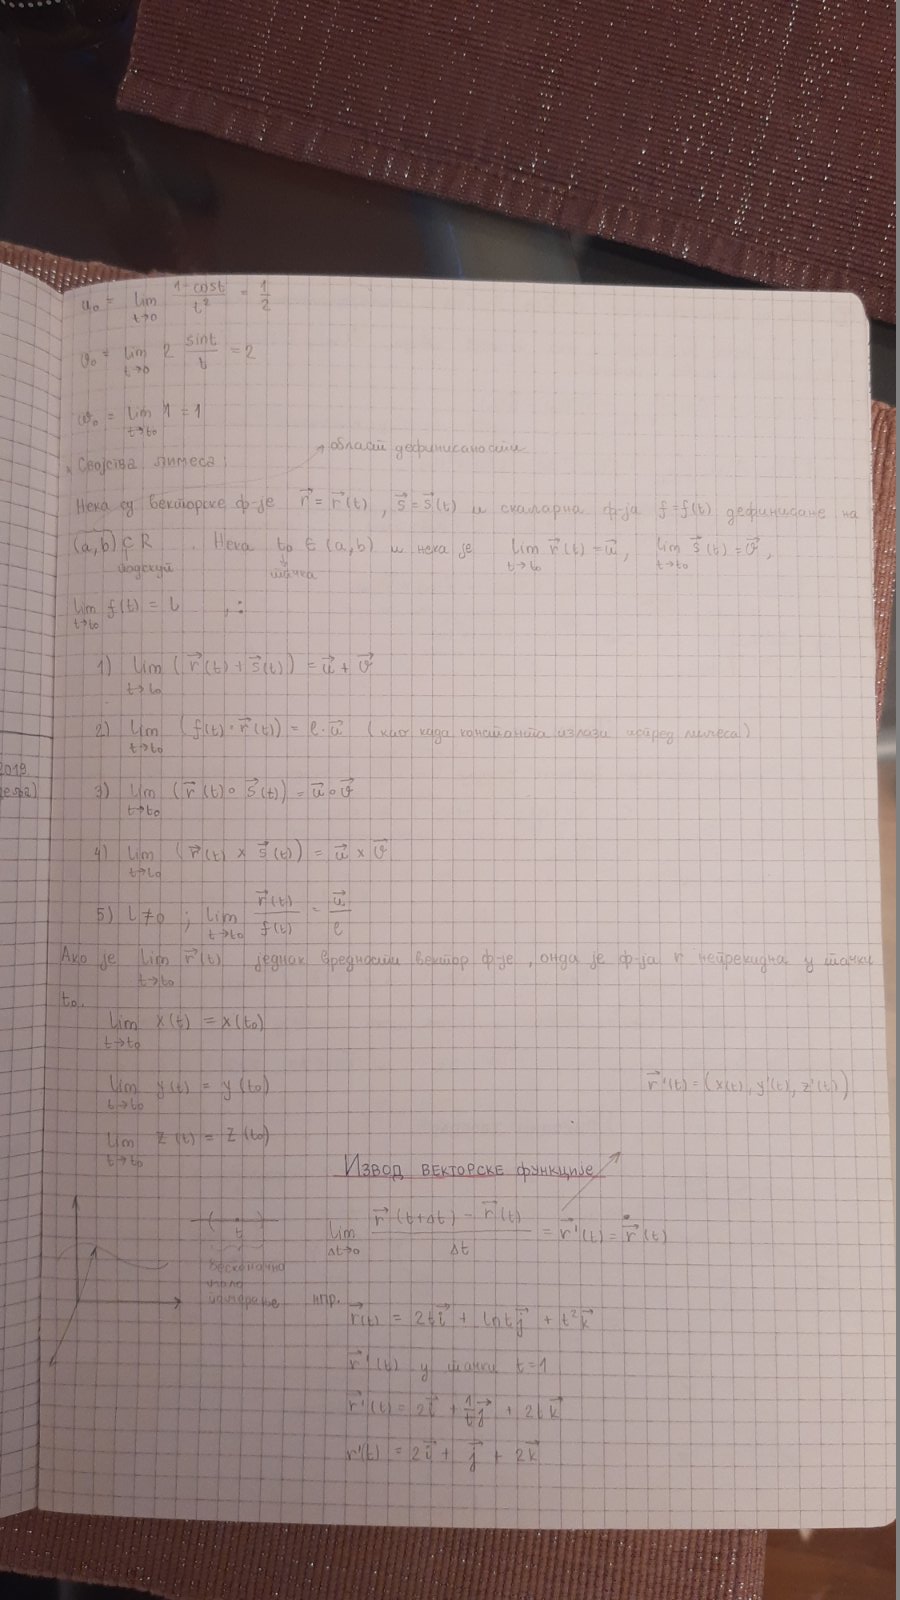 u₀ = lim t→0 (1-cost)/t² = 1/2
v₀ = lim t→0 2 sint/t = 2
w₀ = lim t→t₀ 1 = 1
→ област дефинисаности
Својства лимеса:
Нека су векторске ф-је r⃗ = r⃗(t), s⃗ = s⃗(t) и скаларна ф-ја f = f(t) дефинисане на
(a,b) ⊊ R . Нека t₀ ∈ (a,b) и нека је lim t→t₀ r⃗(t) = u⃗, lim t→t₀ s⃗(t) = v⃗,
подскуп тачка
lim t→t₀ f(t) = l , :
1) lim t→t₀ (r⃗(t) + s⃗(t)) = u⃗ + v⃗
2) lim t→t₀ (f(t) · r⃗(t)) = l · u⃗ (као када константа излази испред лимеса)
3) lim t→t₀ (r⃗(t) ∘ s⃗(t)) = u⃗ ∘ v⃗
4) lim t→t₀ (r⃗(t) × s⃗(t)) = u⃗ × v⃗
5) l ≠ 0 ; lim t→t₀ r⃗(t)/f(t) = u⃗/l
Ако је lim t→t₀ r⃗(t) једнак вредности вектор ф-је, онда је ф-ја r непрекидна у тачки
t₀.
lim t→t₀ x(t) = x(t₀)
lim t→t₀ y(t) = y(t₀)
r⃗'(t) = (x(t), y'(t), z'(t))
lim t→t₀ z(t) = z(t₀)
Извод векторске функције
lim Δt→0 (r⃗(t+Δt) - r⃗(t))/Δt = r⃗'(t) = ṙ⃗(t)
t
бесконачно
мало
померање
нпр.
r⃗(t) = 2t i⃗ + lnt j⃗ + t² k⃗
r⃗'(t) у тачки t=1
r⃗'(t) = 2i⃗ + 1/t j⃗ + 2t k⃗
r'(t) = 2i⃗ + j⃗ + 2k⃗
2019.